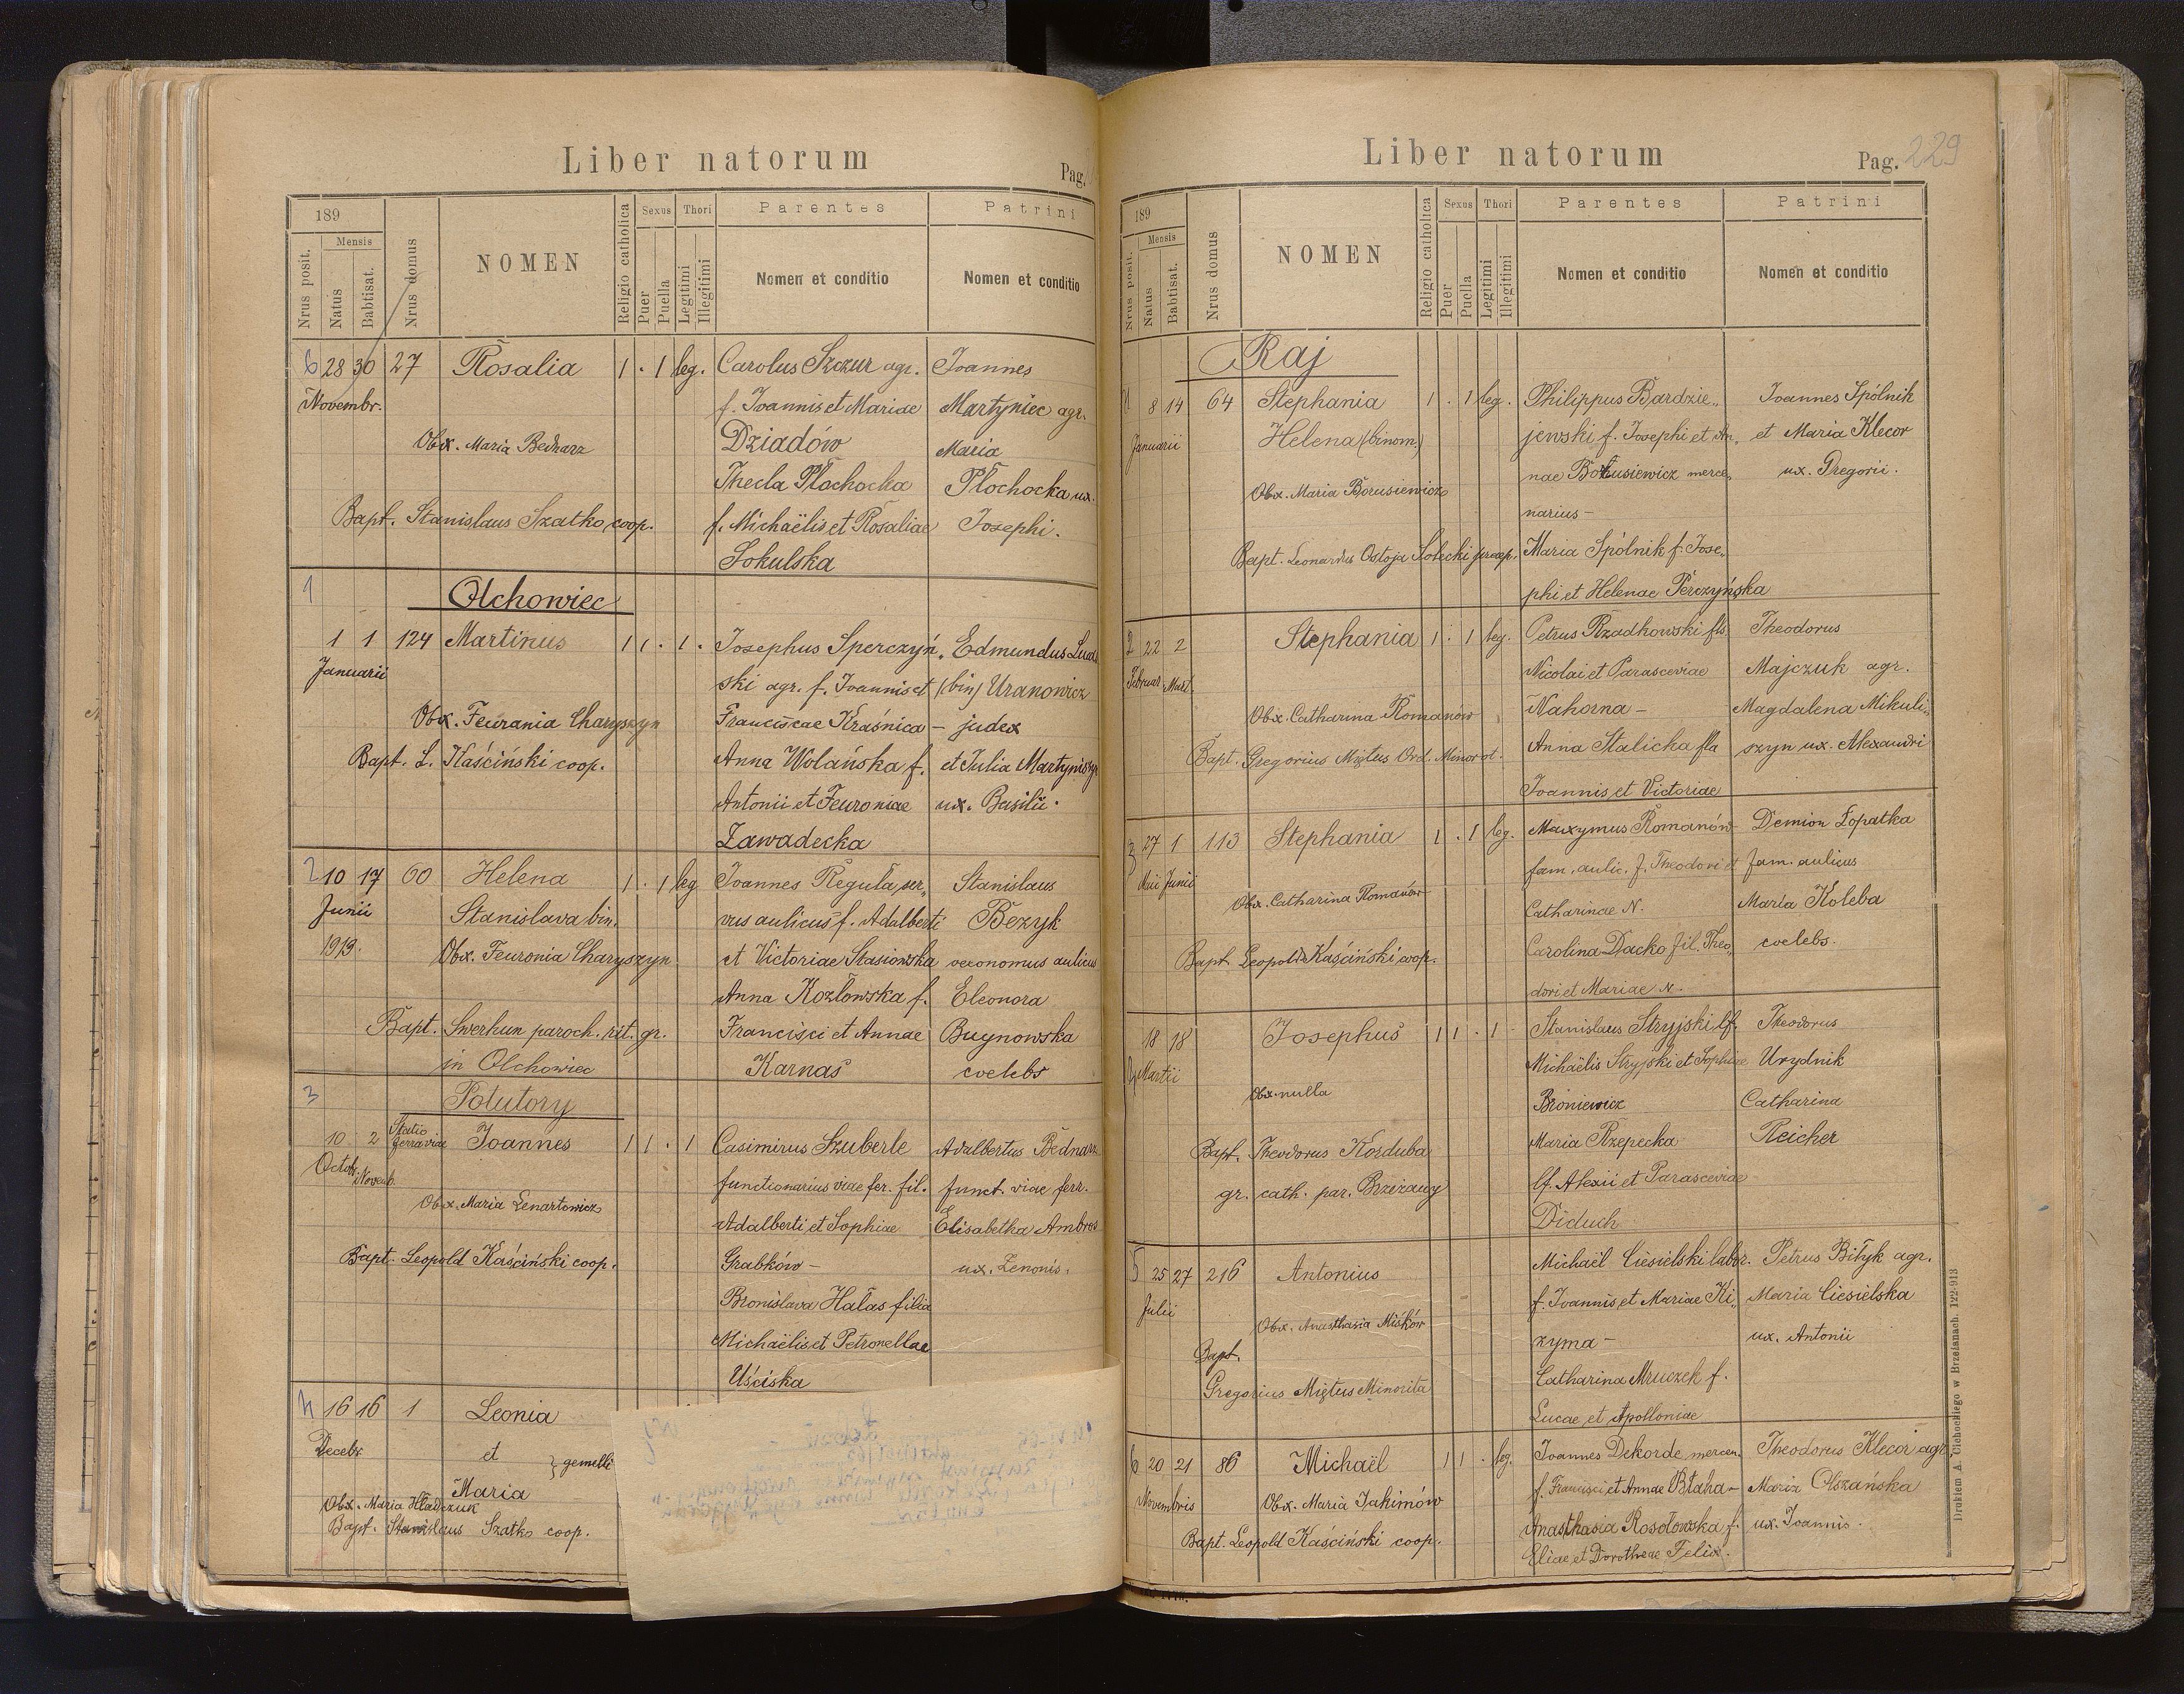 Liber natorum
Pag.
189
Nrus posit.
Mensis
Natus
Babtisat.
Nrus domus
NOMEN
Religio catholica
Sexus
Puer
Puella
Thori
Legitimi
Illegitimi
Parentes
Nomen et conditio
Patrini
Nomen et conditio
6 28 30 27 Rosalia 1 . 1 leg. Carolus Szczur agr. Joannes
Novembr. f. Joannis et Mariae Martyniec agr.
Obx. Maria Bednarz Dziadów Maria
Thecla Płochocka Płochocka ux.
Bapt. Stanislaus Szatko coop. f. Michaëlis et Rosaliae Josephi.
Sokulska
1 Olchowiec
1 1 124 Martinus 1 1 . 1 . Josephus Sperczyń„ Edmundus
Januarii ski agr. f. Joannis et (bin) Uranowicz
Obx. Feurania Charyszyn Franciscae Kraśnica – judex
Bapt. L. Kaściński coop. Anna Wolańska f. et Julia Martyniszyn
Antonii et Feuroniae ux. Basilii.
Zawadecka
2 10 17 60 Helena 1 . 1 leg Joannes Reguła, ser„ Stanislaus
Junii Stanislava bin. vus aulicus f. Adalberti Bezyk
1913. Obx. Feuronia Charyszyn et Victoriae Stasiowska oeconomus aulicus
Anna Kozłowska f. Eleonora
Bapt. Swerhun paroch. rit. gr. Francisci et Annae Bugnowska
in Olchowiec Karnaś coelebs
3 Potutory
10 2 Statio ferraviae Joannes 1 1 . 1 Casimirus Szuberle Adalbertus Bednarz
Octobr. Novemb. functionarius viae fer. fil. funct. viae ferr.
Obx. Maria Lenartowicz Adalberti et Sophiae Elisabetha Ambros
Bapt. Leopold Kaściński coop. Grabków – ux. Zenonis.
Bronislava Hałas filia
Michaëlis et Petronellae
Uściska
4 16 16 1 Leonia
Decebr. et } gemelli
Maria
Obx. Maria Hładczuk
Bapt. Stanislaus Szatko coop.
Liber natorum
Pag. 229
189
Nrus posit.
Mensis
Natus
Babtisat.
Nrus domus
NOMEN
Religio catholica
Sexus
Puer
Puella
Thori
Legitimi
Illegitimi
Parentes
Nomen et conditio
Patrini
Nomen et conditio
Raj
1 8 14 64 Stephania 1 . 1 leg. Philippus Bardzie„ Joannes Spólnik
Januarii Helena (binom.) jewski f. Josephi et An„ et Maria Klecor
nae Borusiewicz merce„ ux. Gregorii.
Obx. Maria Borusiewicz narius –
Bapt. Leonardus Ostoja Solecki praep. Maria Spólnik f. Jose„
phi et Helenae Perczyńska
2 22 2 Stephania 1 . 1 leg. Petrus Rzadkowski fls Theodorus
Februar. Mart. Nicolai et Parasceviae Majczuk agr.
Obx. Catharina Romanów Nahorna – Magdalena Mikuli„
Bapt. Gregorius Miętus Ord. Minor ot. Anna Stalicka fla szyn ux. Alexandri
Joannis et Victoriae
3 27 1 113 Stephania 1 . 1 leg. Maxymus Romanów Demion Łopatka
Maii Junii fam. aulic. f. Theodori et fam. aulicus
Obx. Catharina Romanów Catharinae N. Maria Koleba
Bapt. Leopold Kaściński coop. Carolina Dacko fil. Theo„ coelebs.
dori et Mariae N.
4 18 18 Josephus 1 1 . 1 Stanislaus Stryjski lf. Theodorus
Martii Michaëlis Stryjski et Sophiae Urydnik
Obx. nulla Broniewicz Catharina
Bapt. Theodorus Korduba Maria Rzepecka Reicher
gr. cath. par. Brzeżany lf. Alexii et Parasceviae
Diduch
5 25 27 216 Antonius Michaël Ciesielski labor. Petrus Biłyk agr.
Julii f. Joannis et Mariae Ki„ Maria Ciesielska
Obx. Anasthasia Miśków zyma – ux. Antonii
Bapt. Catharina Mruczek f.
Gregorius Miętus Minorita Lucae et Apolloniae
6 20 21 86 Michaël 1 1 . leg. Joannes Dekorde mercen. Theodorus Klecor agr.
Novembris Obx. Maria Jakimów f. Francisci et Annae Błaha – Maria Olszańska
Bapt. Leopold Kaściński coop. Anasthasia Rosołowska f. ux. Joannis.
Eliae et Dorotheae Felix.
Drukiem A. Cichockiego w Brzeżanach. 122·913